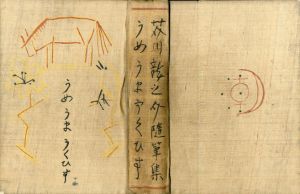 芥川龍之介隨筆集
うめ うま うくひす
うめ うま うくひす